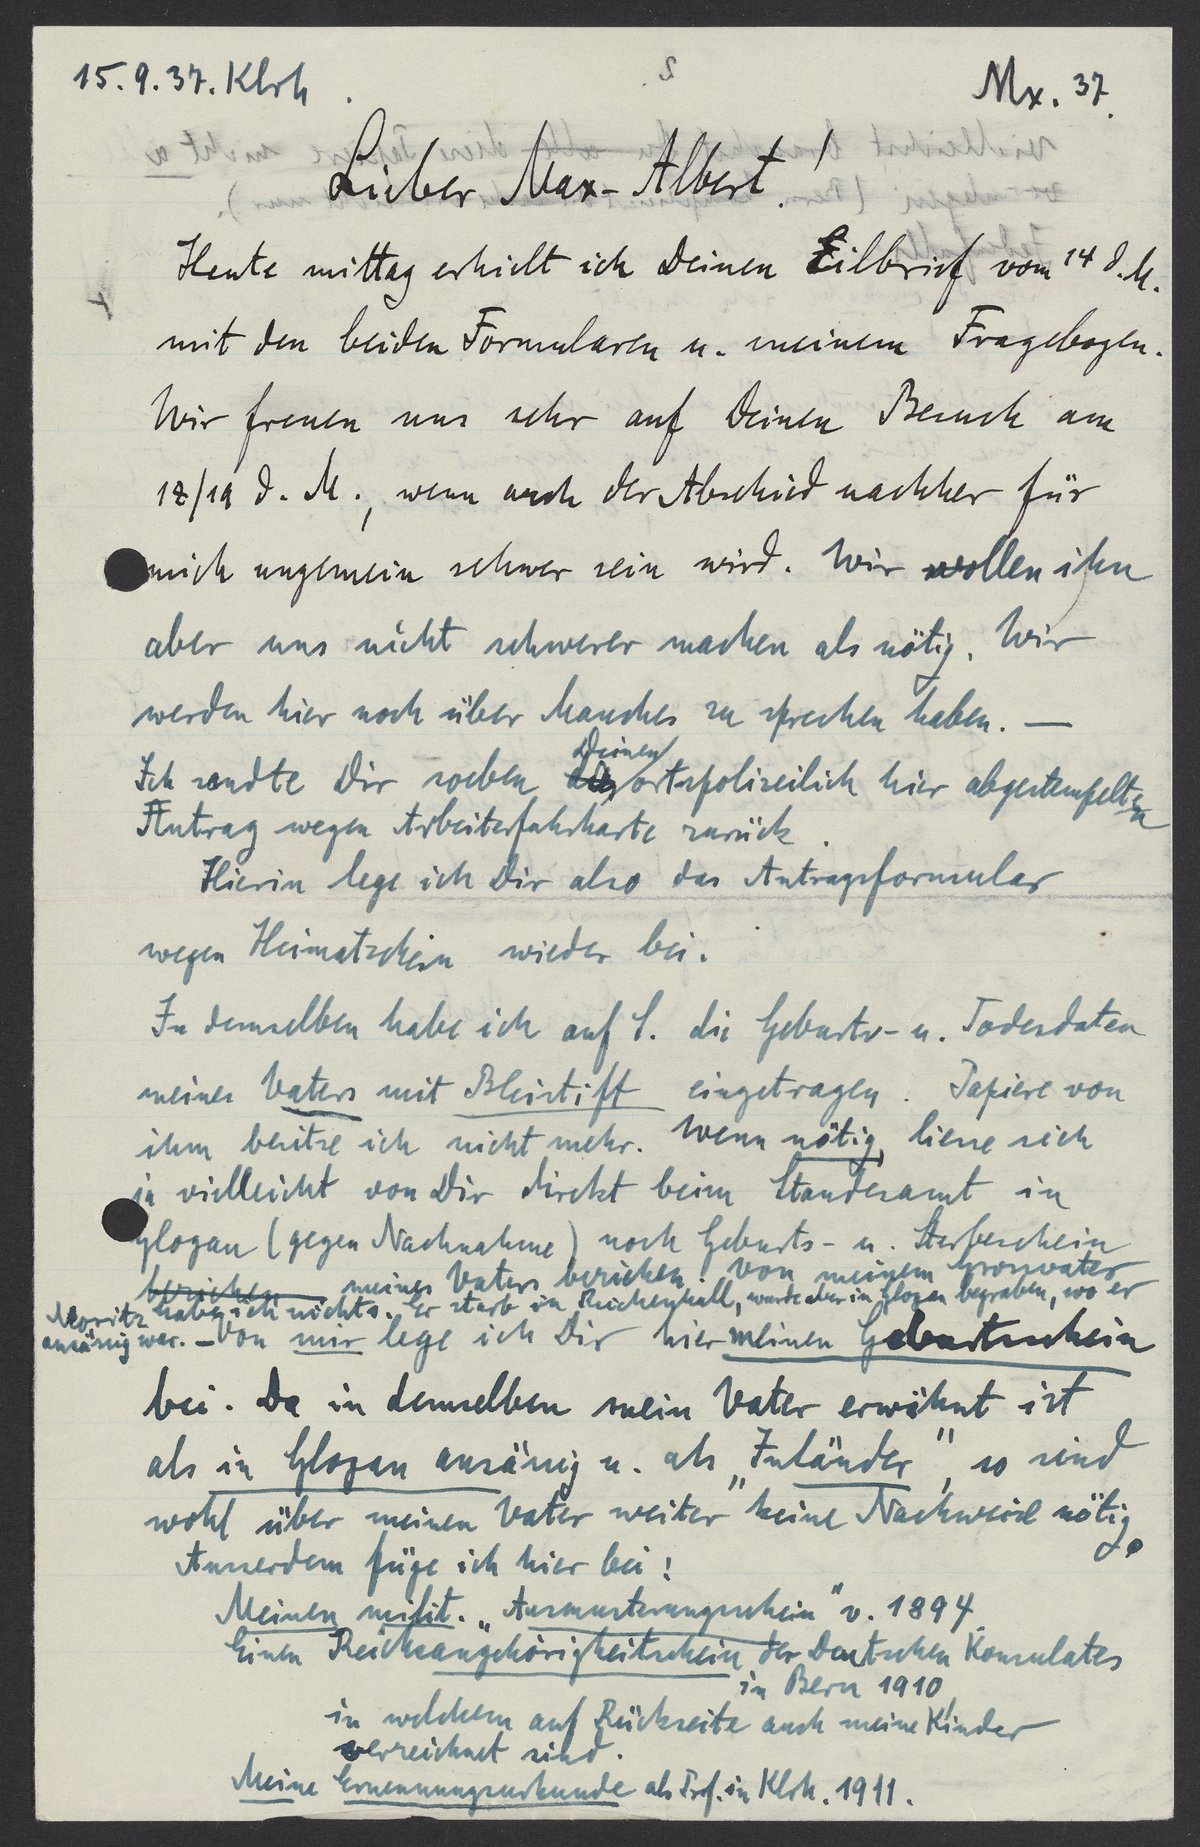 15.9.37. Klrh.
Mx. 37.
Lieber Max-Albert!
Heute mittag erhielt ich Deinen Eilbrief vom 14 d. M.
mit den beiden Formularen u. meinem Fragebogen.
Wir freuen uns sehr auf Deinen Besuch am
18/19 d. M., wenn auch der Abschied nachher für
mich ungemein schwer sein wird. Wir wollen ihn
aber uns nicht schwerer machen als nötig. Wir
werden hier noch über Manches zu sprechen haben. —
Ich sandte Dir soeben Deinen ortspolizeilich hier abgestempelten
Antrag wegen Arbeiterfahrkarte zurück.
Hierin lege ich Dir also das Antragsformular
wegen Heimatschein wieder bei.
In demselben habe ich auf S. die Geburts- u. Todesdaten
meines Vaters mit Bleistift eingetragen. Papiere von
ihm besitze ich nicht mehr. Wenn nötig, liesse sich
ja vielleicht von Dir direkt beim Standesamt in
Glogau (gegen Nachnahme) noch Geburts- u. Sterbeschein
beziehen meines Vaters beziehen. Von meinem Grossvater
Moritz habe ich nichts. Er starb in Reichenhall, wurde aber in Glogau begraben, wo er
ansässig war. — Von mir lege ich Dir hier meinen Geburtsschein
bei. Da in demselben mein Vater erwähnt ist
als in Glogau ansässig u. als „Inländer“, so sind
wohl über meinen Vater weiter keine Nachweise nötig.
Ausserdem füge ich hier bei:
Meinen milit. „Ausmusterungsschein“ v. 1894.
Einen Reichsangehörigkeitschein des Deutschen Konsulates
in Bern 1910,
in welchem auf Rückseite auch meine Kinder
verzeichnet sind.
Meine Ernennungsurkunde als Prof. in Klrh. 1911.